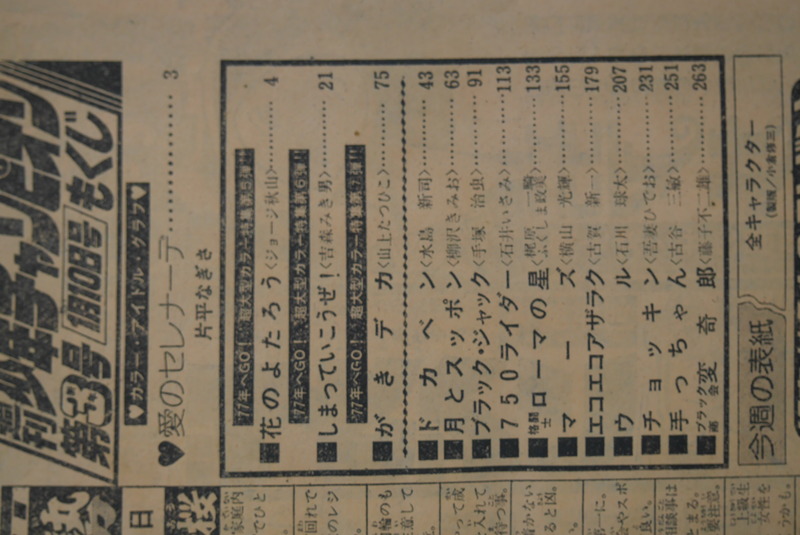 週刊少年チャンピオン
第3号 1月10日号 もくじ
♥カラー・アイドル・グラフ♥
♥愛のセレナーデ………3
片平なぎさ
'77年へGO! 超大型カラー特集第5弾!!
■花のよたろう〈ジョージ秋山〉………4
'77年へGO! 超大型カラー特集第6弾!!
■しまっていこうぜ!〈吉森みき男〉………21
'77年へGO! 超大型カラー特集第7弾!!
■がきデカ〈山上たつひこ〉………75
■ドカベン〈水島新司〉………43
■月とスッポン〈柳沢きみお〉………63
■ブラック・ジャック〈手塚治虫〉………91
■750ライダー〈石井いさみ〉………113
■格闘士ローマの星〈梶原一騎 ふくしま政美〉………133
■マーズ〈横山光輝〉………155
■エコエコアザラク〈古賀新一〉………179
■ウル〈石川球太〉………207
■チョッキン〈吾妻ひでお〉………231
■手っちゃん〈古谷三敏〉………251
■ブラック商会変奇郎〈藤子不二雄〉………263
今週の表紙
全キャラクター